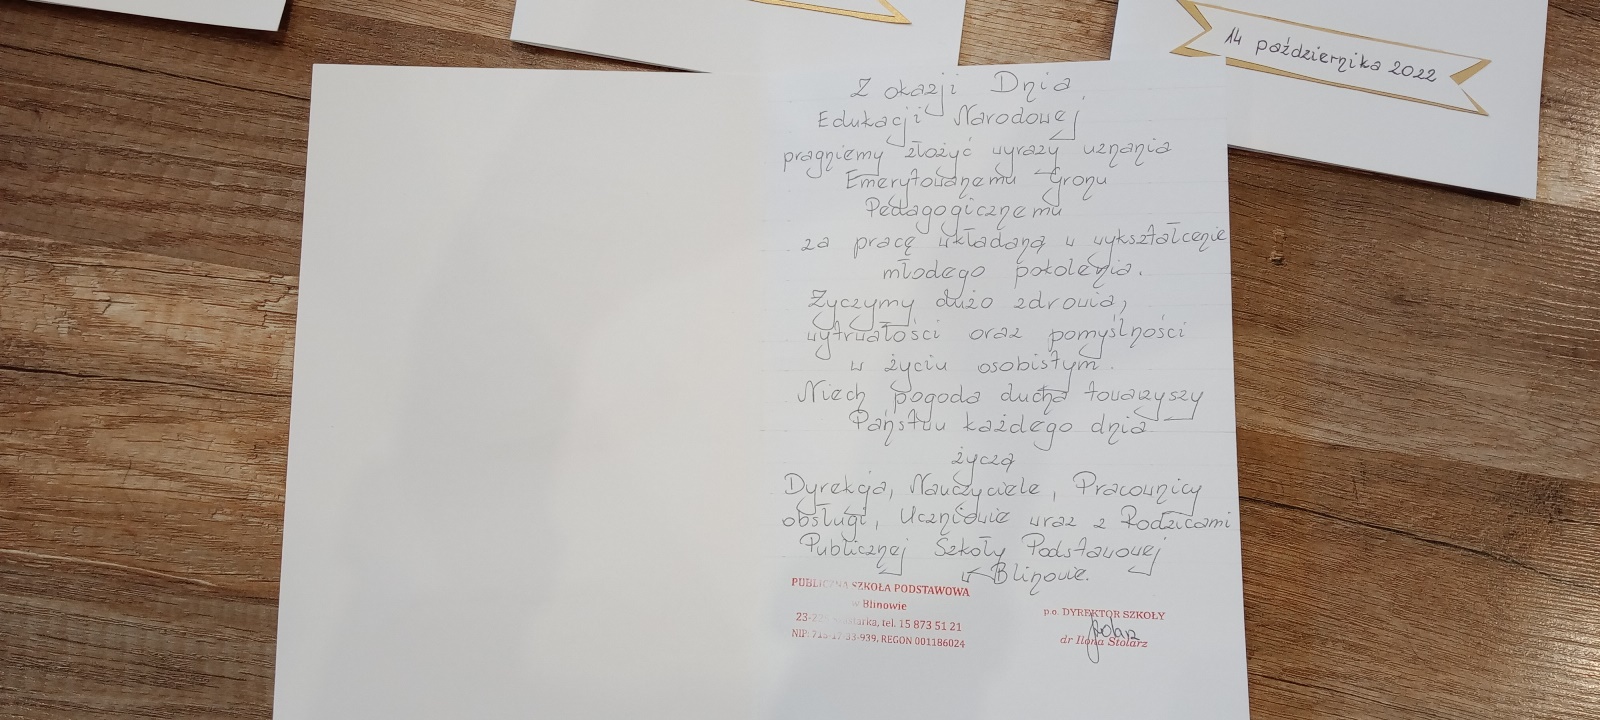 14 października 2022
Z okazji Dnia
Edukacji Narodowej
pragniemy złożyć wyrazy uznania
Emerytowanemu Gronu
Pedagogicznemu
za pracę wkładaną w wykształcenie
młodego pokolenia.
Życzymy dużo zdrowia,
wytrwałości oraz pomyślności
w życiu osobistym.
Niech pogoda ducha towarzyszy
Państwu każdego dnia
życzą
Dyrekcja, Nauczyciele, Pracownicy
obsługi, Uczniowie wraz z Rodzicami
Publicznej Szkoły Podstawowej
w Blinowie.
PUBLICZNA SZKOŁA PODSTAWOWA
w Blinowie
tel. 15 873 51 21
NIP: REGON 001186024
p.o. DYREKTOR SZKOŁY
dr Ilona Stolarz